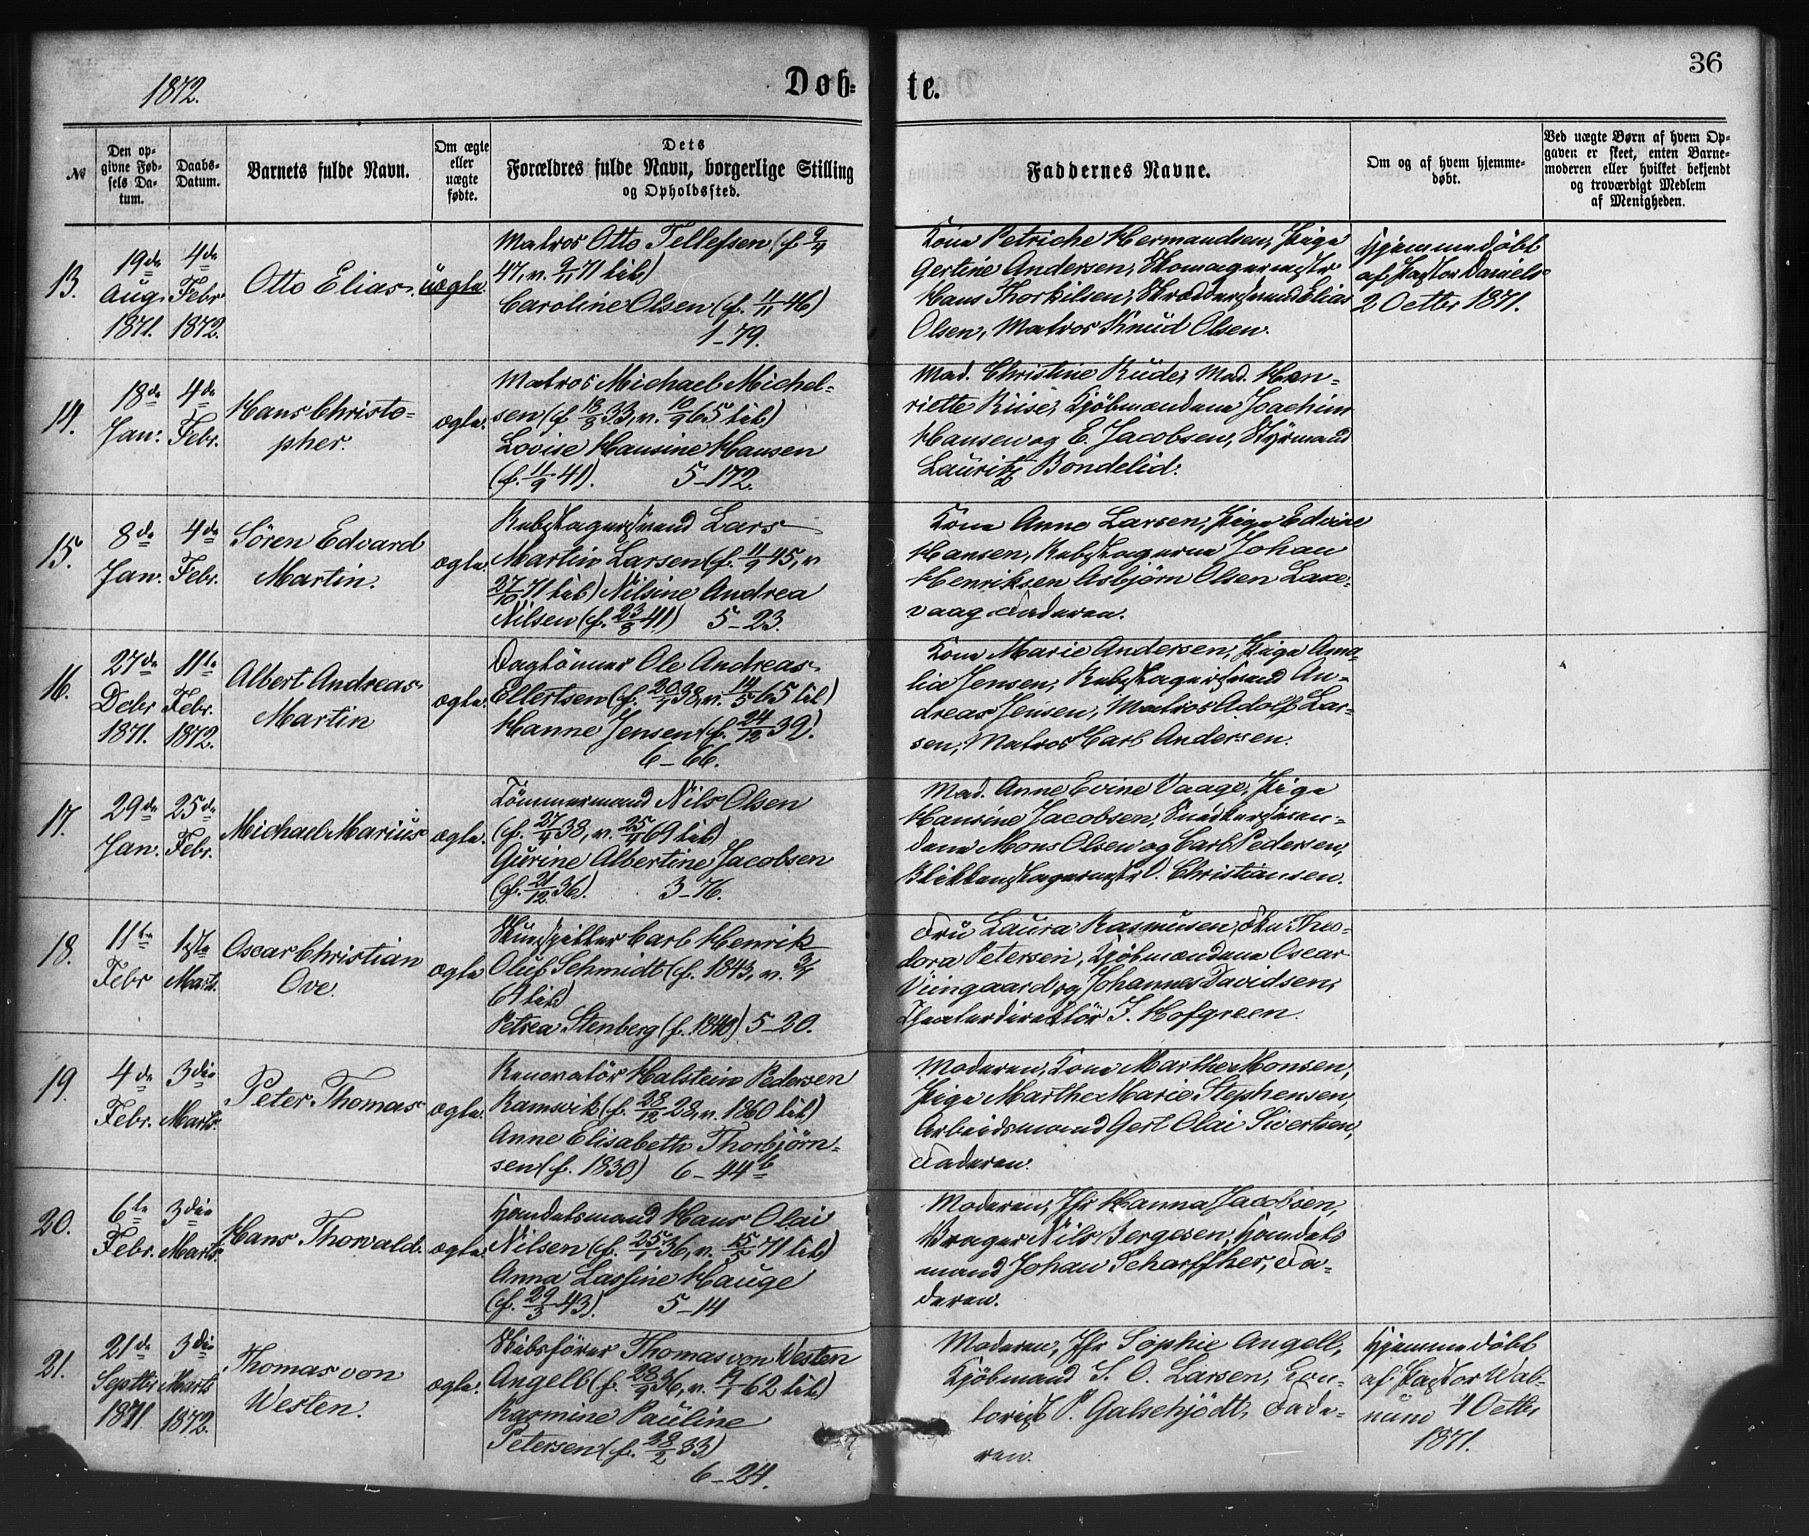 1872.
Døb-
te.
36
№
Den op-
givne Fød-
sels Da-
tum.
Daabs-
Datum.
Barnets fulde Navn.
Om ægte
eller
uægte
fødte.
Dets
Forældres fulde Navn, borgerlige Stilling
og Opholdssted.
Faddernes Navne.
Om og af hvem hjemme-
døbt.
Ved uægte Børn af hvem Op-
gaven er skeet, enten Barne-
moderen eller hvilket bekjendt
og troværdigt Medlem
af Menigheden.
13.
19de
Aug.
1871.
4de
Febr
1872.
Otto Elias.
uægte.
Matros Otto Tellefsen (f.
47, v. 71 til)
Caroline Olsen (f. 11/11 46)
1-79.
Kone Petriche Hermandsen, Pige
Gertine Andersen, Skomagermestr
Hans Thorkilsen, Skræddersvend Elias
Olsen, Matros Knud Olsen.
Hjemmedøbt
af Pastor Daniels-
2 Octbr 1871.
14.
18de
Jan.
4de
Febr.
Hans Christo-
pher.
ægte.
Matros Michael Michel-
sen (f 18/8 33, v. 10/9 65 til)
Lovise Hansine Hansen
(f. 11/9 41). 5-172.
Mad. Christine Rude, Mad. Hen-
riette Riise, Kjøbmændene Joachim
Hansen og E. Jacobsen, Styrmand
Lauritz Bondelid.
15.
8de
Jan.
4de
Febr.
Sören Edvard
Martin.
ægte.
Rebslagersvend Lars
Martin Larsen (f. 11/9 45, v
27/10 71 til) Nilsine Andrea
Nilsen (f. 23/8 41) 5-23.
Kone Anne Larsen, Pige Edvine
Hansen, Rebslagerne Johan
Henriksen Asbjørn Olsen Laxe-
vaag Faderen.
16.
27de
Debr
1871.
11te
Febr.
1872.
Albert Andreas
Martin
ægte.
Dagtönner Ole Andreas
Ellertsen (f. 20/1 38, v. 14/5 65 til)
Hanne Jensen (f. 24/12 39)
6-66.
Kone Marie Andersen, Pige Ama-
lia Jensen, Rebslagersvend An-
dreas Jensen, Matros Adolf Lar-
sen, Matros Carl Andersen.
17.
29de
Jan.
25de
Febr.
Michael Marius
ægte.
Tömmermand Nils Olsen
(f. 27/9 38, v. 25/9 69 til)
Gurine Albertine Jacobsen
(f. 21/12 36). 3-76.
Mad. Anne Evine Vaage, Pige
Hansine Jacobsen, Snedkersven-
dene Mons Olsen og Carl Pedersen,
Blikkenslagermestr O. Christiansen.
18.
11te
Febr
1ste
Marts.
Oscar Christian
Ove.
ægte
Skuespiller Carl Henrik
Oluf Schmidt (f. 1843, v.
69 til)
Petrea Stenberg (f. 1848) 5-20.
Fru Laura Rasmusen, Theo-
dora Petersen, Kjøbmændene Oscar
Viingaard og Johannes Davidsen,
Theaterdirektör J. Hofgreen.
19.
4de
Febr.
3die
Marts.
Peter Thomas
ægte.
Renovatör Halstein Pedersen
Ramsvik (f. 28/12 28, v. 1860 til)
Anne Elisabeth Thorbjörn-
sen (f. 1830) 6-44b
Moderen, Kone Marthe Monsen,
Pige Marthe Marie Stephensen,
Arbeidsmand Gert Olai Sivertsen,
Faderen.
20.
6te
Febr.
3die
Marts.
Hans Thorvald.
ægte.
Handelsmand Hans Olai
Nilsen (f. 25/1 36, v. 15/5 71 til)
Anna Lassine Hauge
(f. 29/3 43). 5-14
Moderen, Jfr Hanna Jacobsen,
Vrager Nils Bergesen, Handels
mand Johan Scharffher, Fa-
deren.
21.
21de
Septbr
1871
3die
Marts
1872.
Thomas von
Westen.
ægte.
Skibsförer Thomas von Westen
Angell (f. 28/9 36, v. 14/1 62 til)
Rasmine Pauline
Petersen (f. 28/2 33)
6-24.
Moderen, Jfr Sophie Angell,
Kjöbmand S. O. Larsen, Con-
torist P. Galschjödt, Fade-
ren.
Hjemmedøbt
af Pastor Wal-
num 4 Octbr
1871.